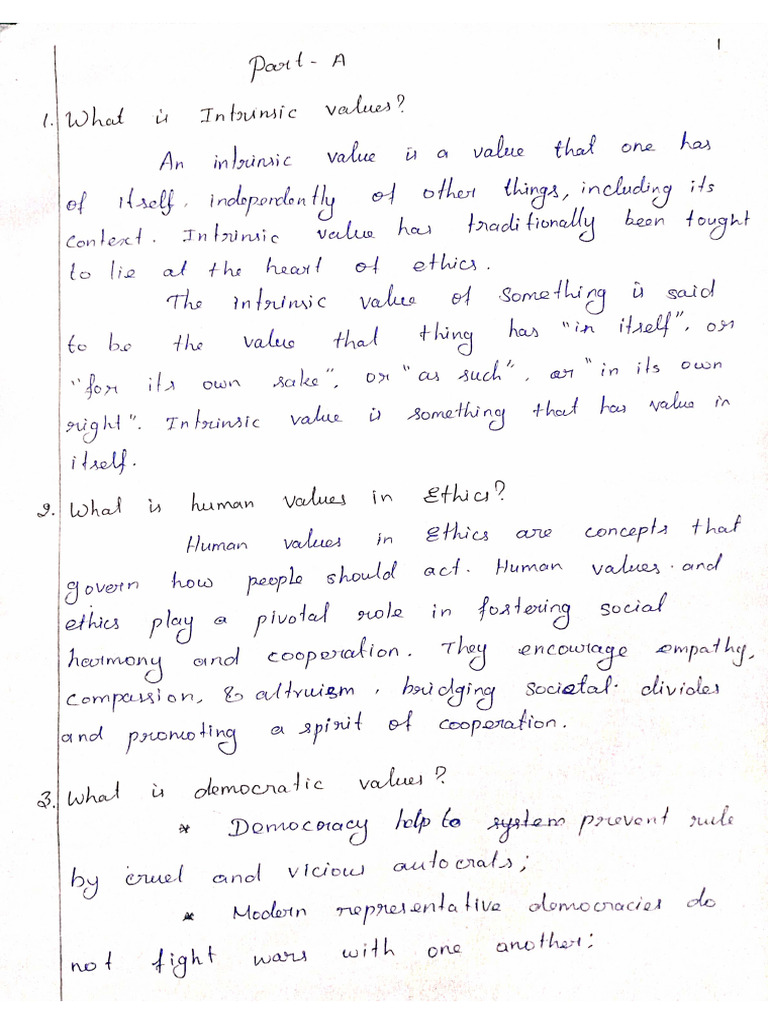 1
Part - A
1. What is Intrinsic values?
An intrinsic value is a value that one has
of itself, independently of other things, including its
context. Intrinsic value has traditionally been tought
to lie at the heart of ethics.
The intrinsic value of something is said
to be the value that thing has "in itself", or
"for its own sake", or "as such", or "in its own
right". Intrinsic value is something that has value in
itself.
2. What is human values in Ethics?
Human values in Ethics are concepts that
govern how people should act. Human values and
ethics play a pivotal role in fostering social
harmony and cooperation. They encourage empathy,
compassion, & altruism, bridging societal divides
and promoting a spirit of cooperation.
3. What is democratic values?
* Democracy help to system prevent rule
by cruel and vicious autocrats;
* Modern representative democracies do
not fight wars with one another;